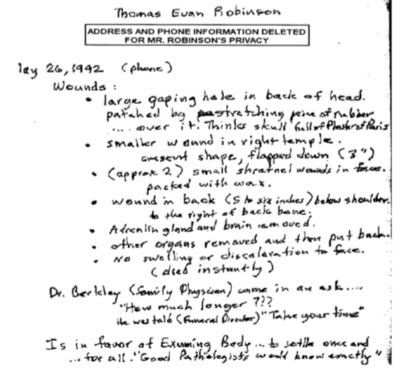 Thomas Evan Robinson
ADDRESS AND PHONE INFORMATION DELETED
FOR MR. ROBINSON'S PRIVACY
May 26, 1992 (phone)
Wounds:
• large gaping hole in back of head.
patched by stretching piece of rubber
.... over it. Thinks skull full of Plaster of Paris
• smaller wound in right temple.
crescent shape, flapped down (3")
• (approx 2) small shrapnel wounds in face.
packed with wax.
• wound in back (5 to six inches) below shoulder.
to the right of back bone.
• Adrenlin gland and brain removed.
• other organs removed and then put back.
• No swelling or discoloration to face.
(died instantly)
Dr. Berkley (family Physician) came in an ask....
"How much longer???
He was told (Funeral Director) "Take your time"
Is in favor of Exuming Body... to settle once and
... for all. "Good Pathologists would know exactly"